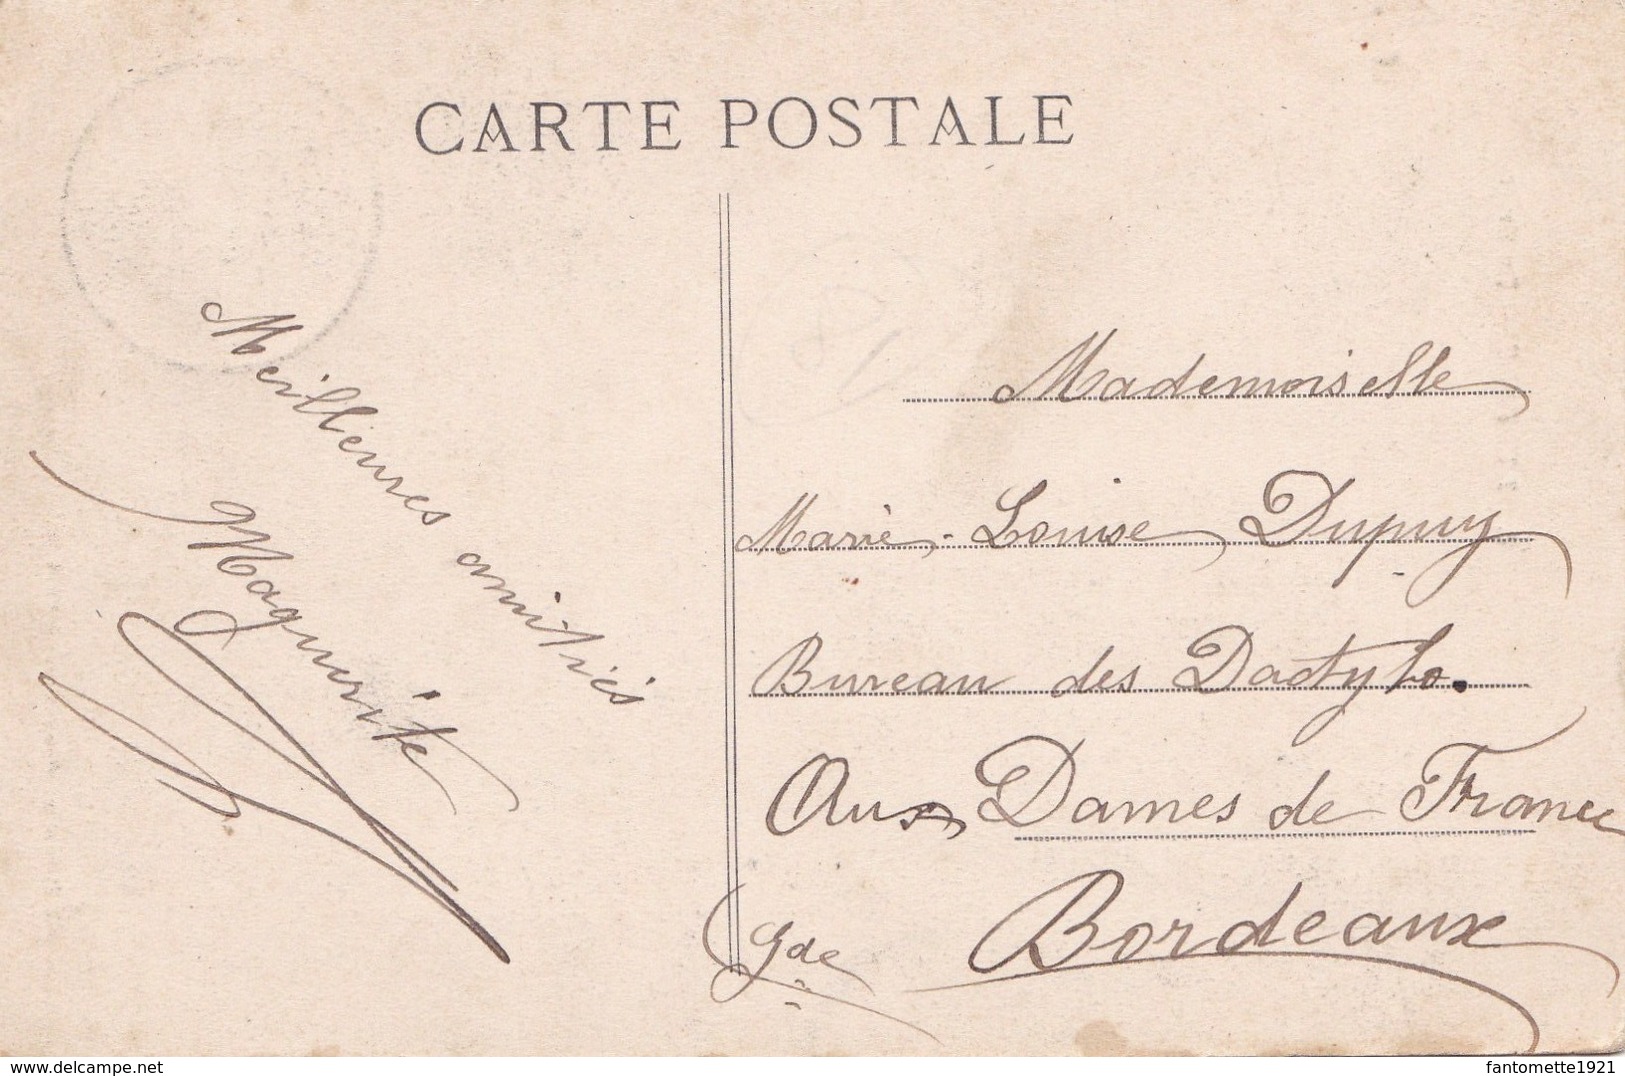 CARTE POSTALE
Meilleures amitiés
Marguerite
Mademoiselle
Marie-Louise Dupuy
Bureau des Dactylo.
Aux Dames de France
Bordeaux
Gde
www.delcampe.net
fantomette1921